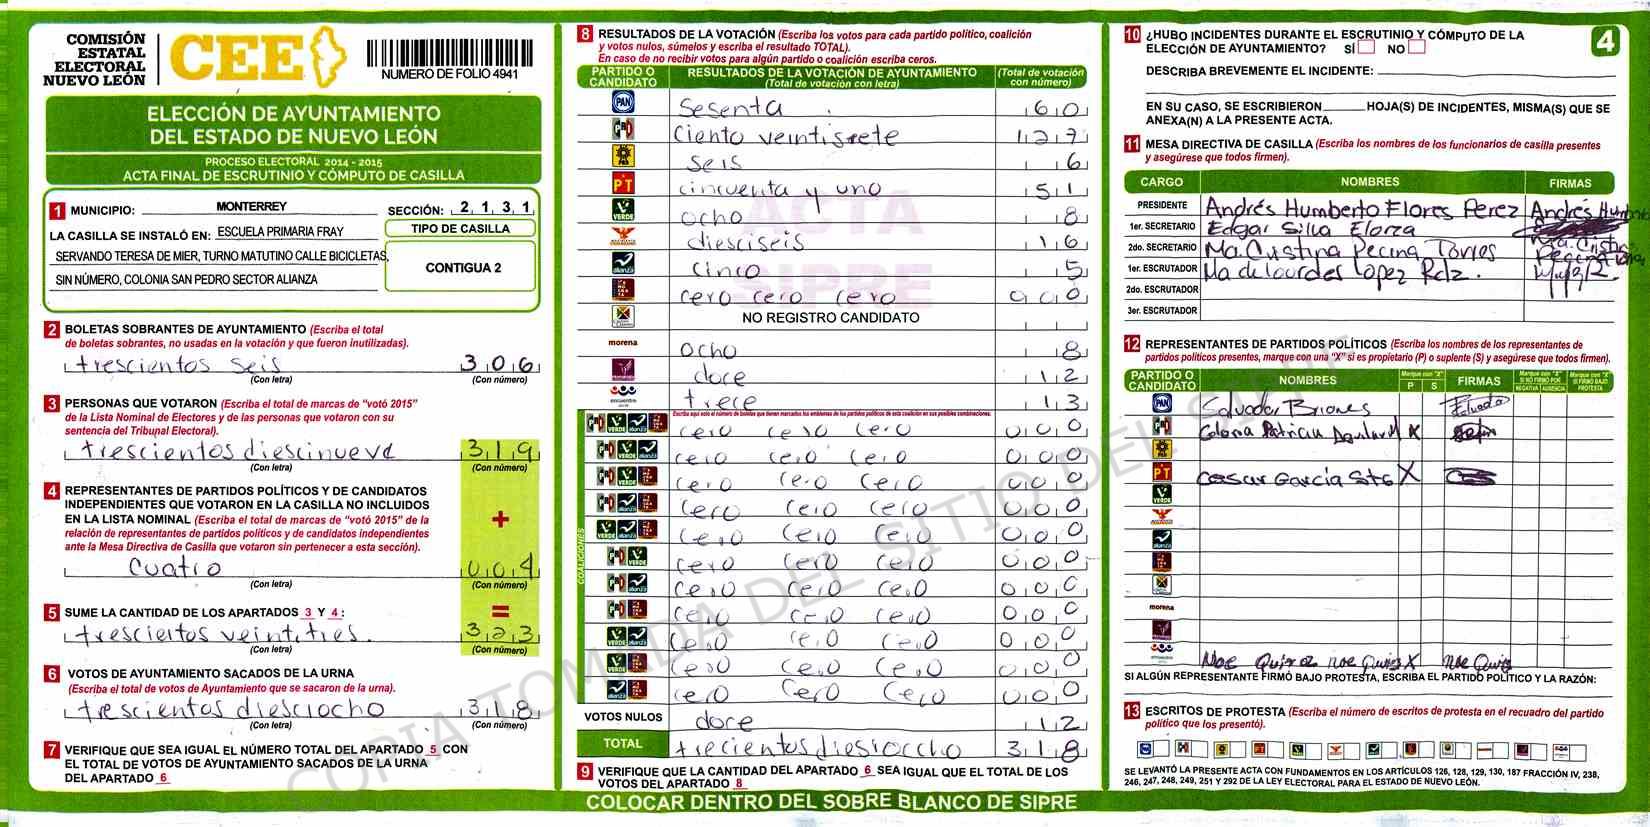 COMISIÓN
ESTATAL
ELECTORAL
NUEVO LEÓN
CEE
NUMERO DE FOLIO 4941
ELECCIÓN DE AYUNTAMIENTO
DEL ESTADO DE NUEVO LEÓN
PROCESO ELECTORAL 2014 - 2015
ACTA FINAL DE ESCRUTINIO Y CÓMPUTO DE CASILLA
1 MUNICIPIO: MONTERREY SECCIÓN: 2 1 3 1
LA CASILLA SE INSTALÓ EN: ESCUELA PRIMARIA FRAY
SERVANDO TERESA DE MIER, TURNO MATUTINO CALLE BICICLETAS,
SIN NÚMERO, COLONIA SAN PEDRO SECTOR ALIANZA
TIPO DE CASILLA
CONTIGUA 2
2 BOLETAS SOBRANTES DE AYUNTAMIENTO (Escriba el total
de boletas sobrantes, no usadas en la votación y que fueron inutilizadas).
trescientos seis 3 0 6
(Con letra) (Con número)
3 PERSONAS QUE VOTARON (Escriba el total de marcas de "votó 2015"
de la Lista Nominal de Electores y de las personas que votaron con su
sentencia del Tribunal Electoral).
trescientos diescinueve 3 1 9
(Con letra) (Con número)
4 REPRESENTANTES DE PARTIDOS POLÍTICOS Y DE CANDIDATOS
INDEPENDIENTES QUE VOTARON EN LA CASILLA NO INCLUIDOS
EN LA LISTA NOMINAL (Escriba el total de marcas de "votó 2015" de la
relación de representantes de partidos políticos y de candidatos independientes
ante la Mesa Directiva de Casilla que votaron sin pertenecer a esta sección).
+
cuatro 0 0 4
(Con letra) (Con número)
5 SUME LA CANTIDAD DE LOS APARTADOS 3 Y 4: =
trescientos veintitres. 3 2 3
(Con letra) (Con número)
6 VOTOS DE AYUNTAMIENTO SACADOS DE LA URNA
(Escriba el total de votos de Ayuntamiento que se sacaron de la urna).
trescientos diesciocho 3 1 8
(Con letra) (Con número)
7 VERIFIQUE QUE SEA IGUAL EL NÚMERO TOTAL DEL APARTADO 5 CON
EL TOTAL DE VOTOS DE AYUNTAMIENTO SACADOS DE LA URNA
DEL APARTADO 6
8 RESULTADOS DE LA VOTACIÓN (Escriba los votos para cada partido político, coalición
y votos nulos, súmelos y escriba el resultado TOTAL).
En caso de no recibir votos para algún partido o coalición escriba ceros.
PARTIDO O CANDIDATO
RESULTADOS DE LA VOTACIÓN DE AYUNTAMIENTO
(Total de votación con letra)
(Total de votación con número)
PAN sesenta 6 0
PRD ciento veintisiete 1 2 7
PRD seis 6
PT cincuenta y uno 5 1
VERDE ocho 8
diesciseis 1 6
alianza cinco 5
cero cero cero 0 0 0
NO REGISTRO CANDIDATO
morena ocho 8
doce 1 2
encuentro trece 1 3
Escriba aquí solo el número de boletas que tienen marcados los emblemas de los partidos políticos de esta coalición en sus posibles combinaciones.
COALICIONES
cero cero cero 0 0 0
cero cero cero 0 0 0
cero cero cero 0 0 0
cero cero cero 0 0 0
cero cero cero 0 0 0
cero cero cero 0 0 0
cero cero cero 0 0 0
cero cero cero 0 0 0
cero cero cero 0 0 0
cero cero cero 0 0 0
cero cero cero 0 0 0
VOTOS NULOS doce 1 2
TOTAL trecientos diesioccho 3 1 8
9 VERIFIQUE QUE LA CANTIDAD DEL APARTADO 6 SEA IGUAL QUE EL TOTAL DE LOS
VOTOS DEL APARTADO 8
ACTA
SIPRE
COPIA TOMADA DEL SITIO DEL SIPRE
COLOCAR DENTRO DEL SOBRE BLANCO DE SIPRE
4
10 ¿HUBO INCIDENTES DURANTE EL ESCRUTINIO Y CÓMPUTO DE LA
ELECCIÓN DE AYUNTAMIENTO? SÍ NO
DESCRIBA BREVEMENTE EL INCIDENTE:
EN SU CASO, SE ESCRIBIERON HOJA(S) DE INCIDENTES, MISMA(S) QUE SE
ANEXA(N) A LA PRESENTE ACTA.
11 MESA DIRECTIVA DE CASILLA (Escriba los nombres de los funcionarios de casilla presentes
y asegúrese que todos firmen).
CARGO NOMBRES FIRMAS
PRESIDENTE Andrés Humberto Flores Perez Andrés Humberto
1er. SECRETARIO Edgar Silla Elorza
2do. SECRETARIO Ma. Cristina Pecina Torres Ma. Cristina Pecina Torres
1er. ESCRUTADOR Ma de Lourdes Lopez Rdz.
2do. ESCRUTADOR
3er. ESCRUTADOR
12 REPRESENTANTES DE PARTIDOS POLÍTICOS (Escriba los nombres de los representantes de
partidos políticos presentes, marque con una "X" si es propietario (P) o suplente (S) y asegúrese que todos firmen).
PARTIDO O CANDIDATO NOMBRES Marque con "X" P S FIRMAS Marque con "X" SI NO FIRMÓ POR NEGATIVA AUSENCIA Marque con "X" SI FIRMÓ BAJO PROTESTA
PAN Salvador Briones Salvador
Gloria Patricia Aguilar M X
PT Cesar García Sto X
VERDE
alianza
morena
Noe Quiroz noe Quiroz X Noe Quiroz
SI ALGÚN REPRESENTANTE FIRMÓ BAJO PROTESTA, ESCRIBA EL PARTIDO POLÍTICO Y LA RAZÓN:
13 ESCRITOS DE PROTESTA (Escriba el número de escritos de protesta en el recuadro del partido
político que los presentó).
SE LEVANTÓ LA PRESENTE ACTA CON FUNDAMENTOS EN LOS ARTÍCULOS 126, 128, 129, 130, 187 FRACCIÓN IV, 238,
246, 247, 248, 249, 251 Y 292 DE LA LEY ELECTORAL PARA EL ESTADO DE NUEVO LEÓN.